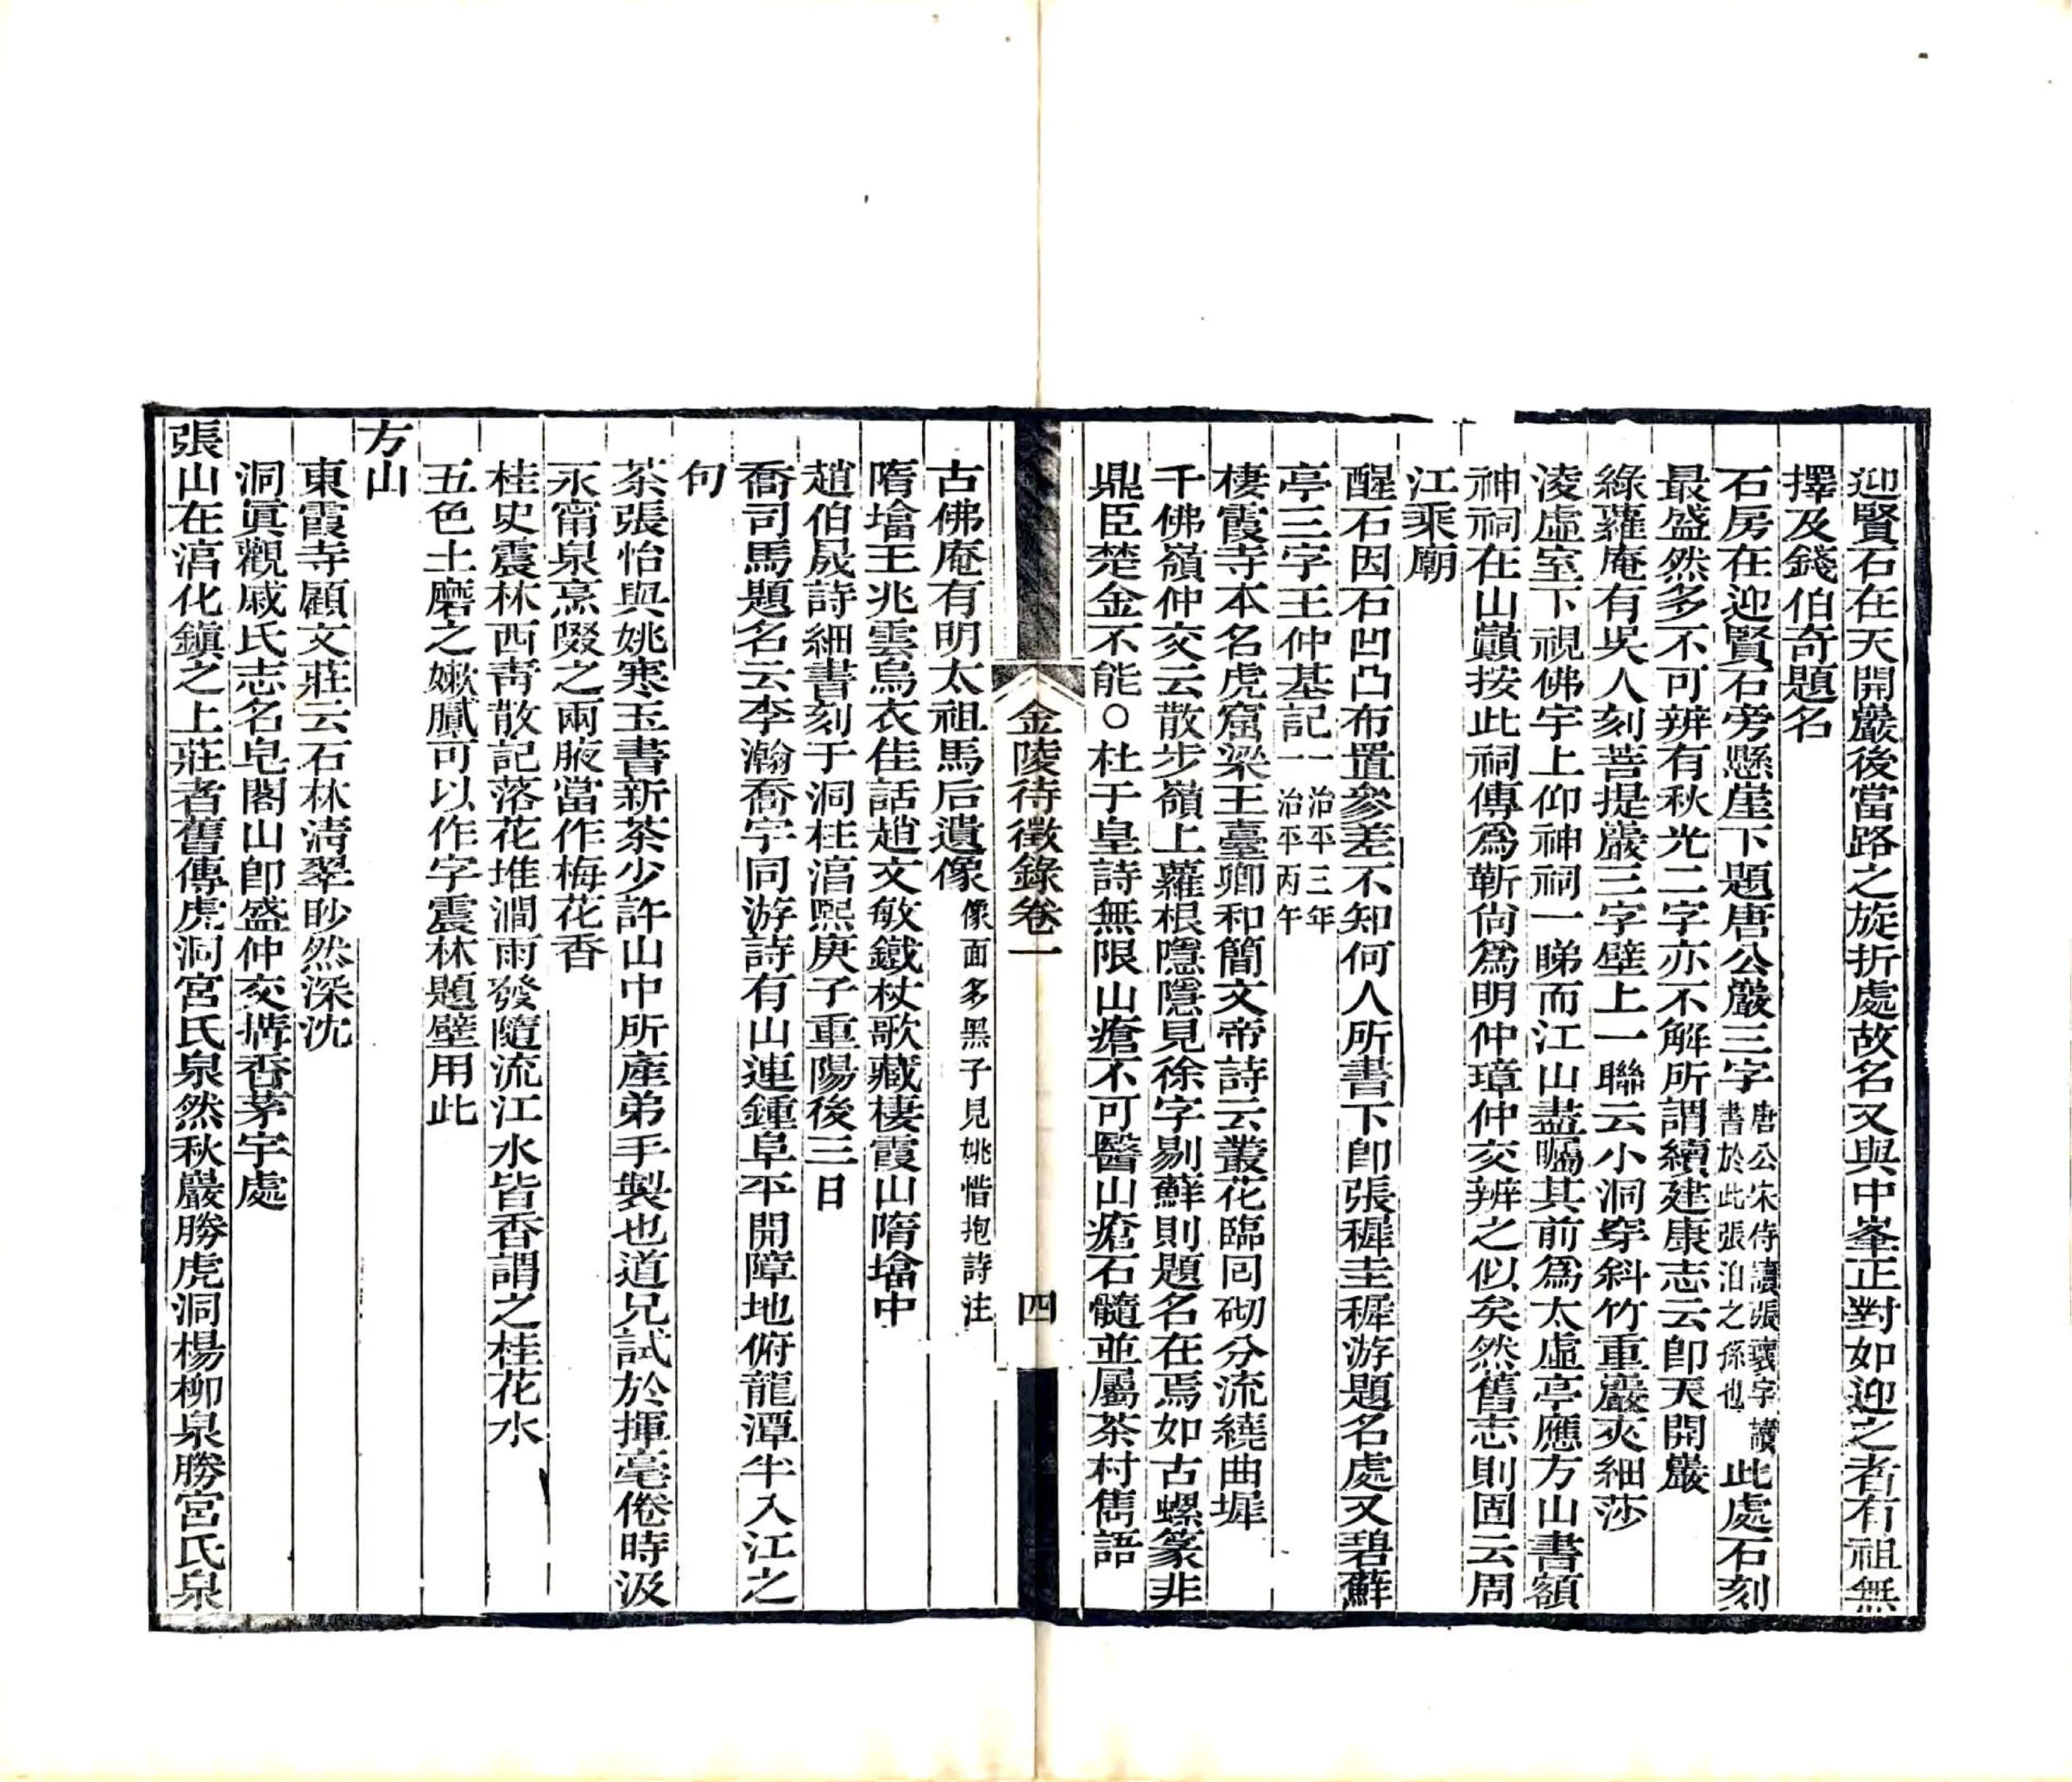 迎賢石在天開巖後當路之旋折處故名又與中峯正對如迎之者有祖無
擇及錢伯奇題名
石房在迎賢石旁懸崖下題唐公巖三字唐公宋侍讀張瓌字讀書於此張洎之孫也此處石刻
最盛然多不可辨有秋光二字亦不解所謂續建康志云卽天開巖
綠蘿庵有吳人刻菩提巖三字壁上一聯云小洞穿斜竹重巖夾細莎
淩虛室下視佛宇上仰神祠一睇而江山盡矚其前爲太虛亭應方山書額
神祠在山巔按此祠傳爲靳尙爲明仲璋仲交辨之似矣然舊志則固云周
江乘廟
醒石因石凹凸布置參差不知何人所書下卽張穉圭穉游題名處又碧蘚
亭三字王仲基記一治平三年治平丙午
棲霞寺本名虎窟梁王臺卿和簡文帝詩云叢花臨囘砌分流繞曲墀
千佛嶺仲交云散步嶺上蘿根隱隱見徐字剔蘚則題名在焉如古螺篆非
鼎臣楚金不能○杜于皇詩無限山瘡不可醫山瘡石髓並屬茶村雋語
金陵待徵錄卷一
四
古佛庵有明太祖馬后遺像像面多黑子見姚惜抱詩注
隋墖王兆雲烏衣佳話趙文敏鐵杖歌藏棲霞山隋墖中
趙伯晟詩細書刻于洞柱淳熙庚子重陽後三日
喬司馬題名云李瀚喬宇同游詩有山連鍾阜平開障地俯龍潭半入江之
句
茶張怡與姚寒玉書新茶少許山中所產弟手製也道兄試於揮毫倦時汲
永甯泉烹啜之兩腋當作梅花香
桂史震林西靑散記落花堆澗雨發隨流江水皆香謂之桂花水
五色土磨之嫩膩可以作字震林題壁用此
方山
東霞寺顧文莊云石林淸翠眇然深沈
洞眞觀戚氏志名皂閣山卽盛仲交搆香茅宇處
張山在湻化鎭之上莊者舊傳虎洞宮氏泉然秋巖勝虎洞楊柳泉勝宮氏泉